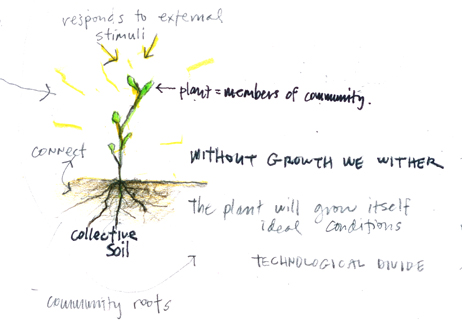 responds to external
stimuli
plant = members of community.
connect
WITHOUT GROWTH WE WITHER
The plant will grow itself
ideal conditions
collective
Soil
TECHNOLOGICAL DIVIDE
community roots